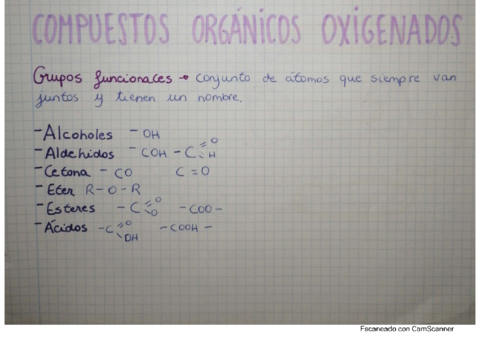 COMPUESTOS ORGÁNICOS OXIGENADOS
Grupos funcionales → conjunto de átomos que siempre van
juntos y tienen un nombre.
- Alcoholes - OH
- Aldehidos - COH - C=O H
- Cetona - CO C=O
- Eter R-O-R
- Esteres - C=O O -COO-
- Ácidos - C=O OH -COOH-
Escaneado con CamScanner